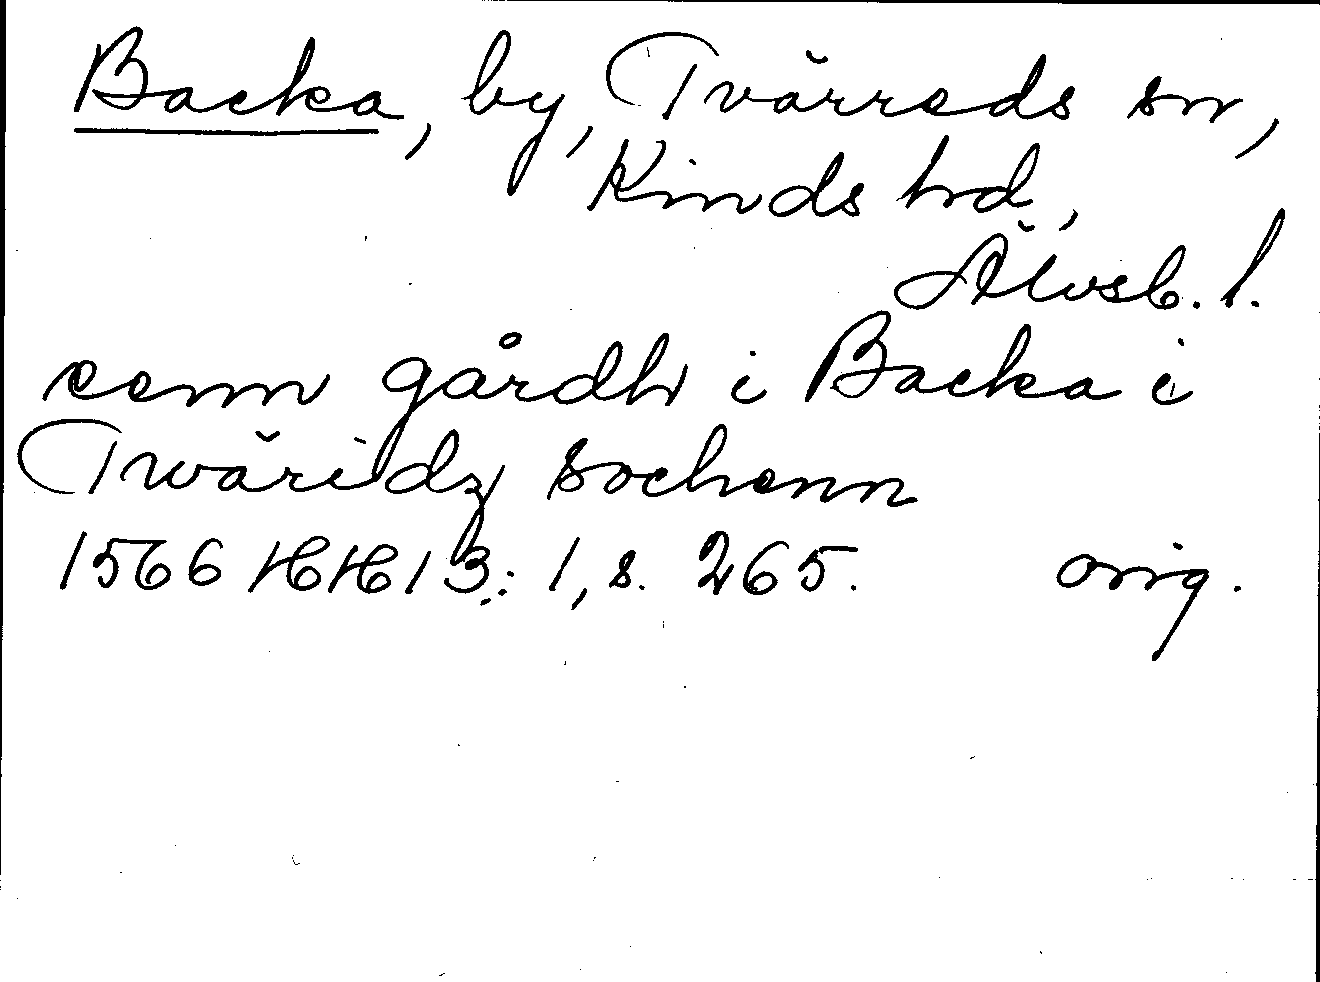 Backa, by, Tvärreds sn,
Kinds hd,
Älvsb. l.
eenn gårdh i Backa i
Twäridz sochenn
1566 HH 13: 1, s. 265. orig.